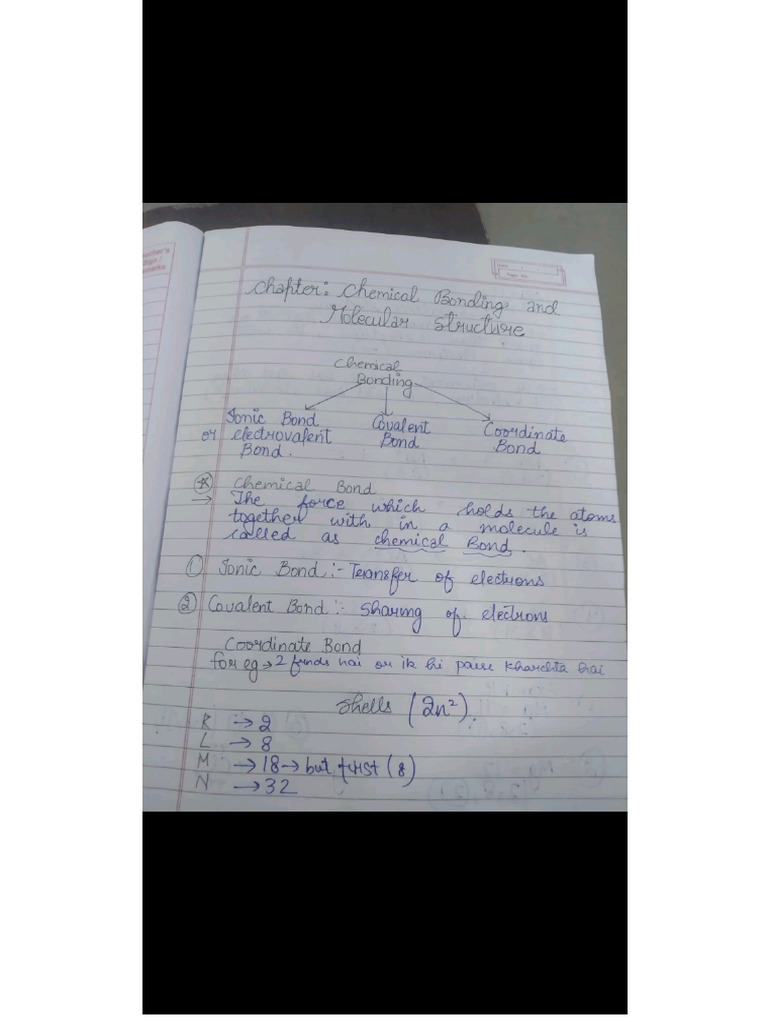 Teacher's
Sign /
Remarks
Chapter: Chemical Bonding and
Molecular Structure
Chemical
Bonding
Ionic Bond
or electrovalent
Bond.
Covalent
Bond
Coordinate
Bond
Chemical Bond
→ The force which holds the atoms
together with in a molecule is
called as chemical Bond.
① Ionic Bond :- Transfer of electrons
② Covalent Bond :- Sharing of electrons
Coordinate Bond
for eg → 2 frnds hai or ik hi paise kharchta hai
Shells (2n²).
K → 2
L → 8
M → 18 → but first (8)
N → 32